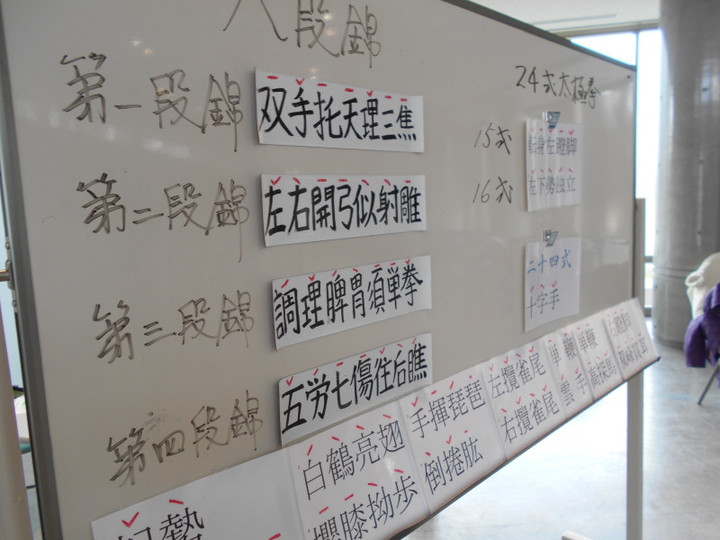 八段錦
第一段錦
双手托天理三焦
第二段錦
左右開弓似射雕
第三段錦
調理脾胃須単拳
第四段錦
五労七傷往后瞧
24式太極拳
15式
転身左蹬脚
16式
左下勢独立
二十四式
十字手
白鶴亮翅
手揮琵琶
左攬雀尾
単鞭
摟膝拗歩
倒捲肱
右攬雀尾
雲手
高探馬